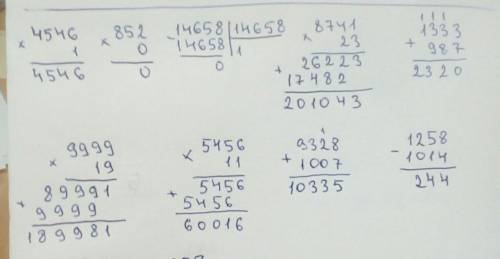 × 4546
1
4546
× 852
0
0
- 14658 | 14658
14658 | 1
0
× 8741
23
26223
+ 17482
201043
1 1 1
+ 1333
987
2320
× 9999
19
89991
+ 9999
189981
× 5456
11
5456
+ 5456
60016
1
+ 9328
1007
10335
- 1258
1014
244